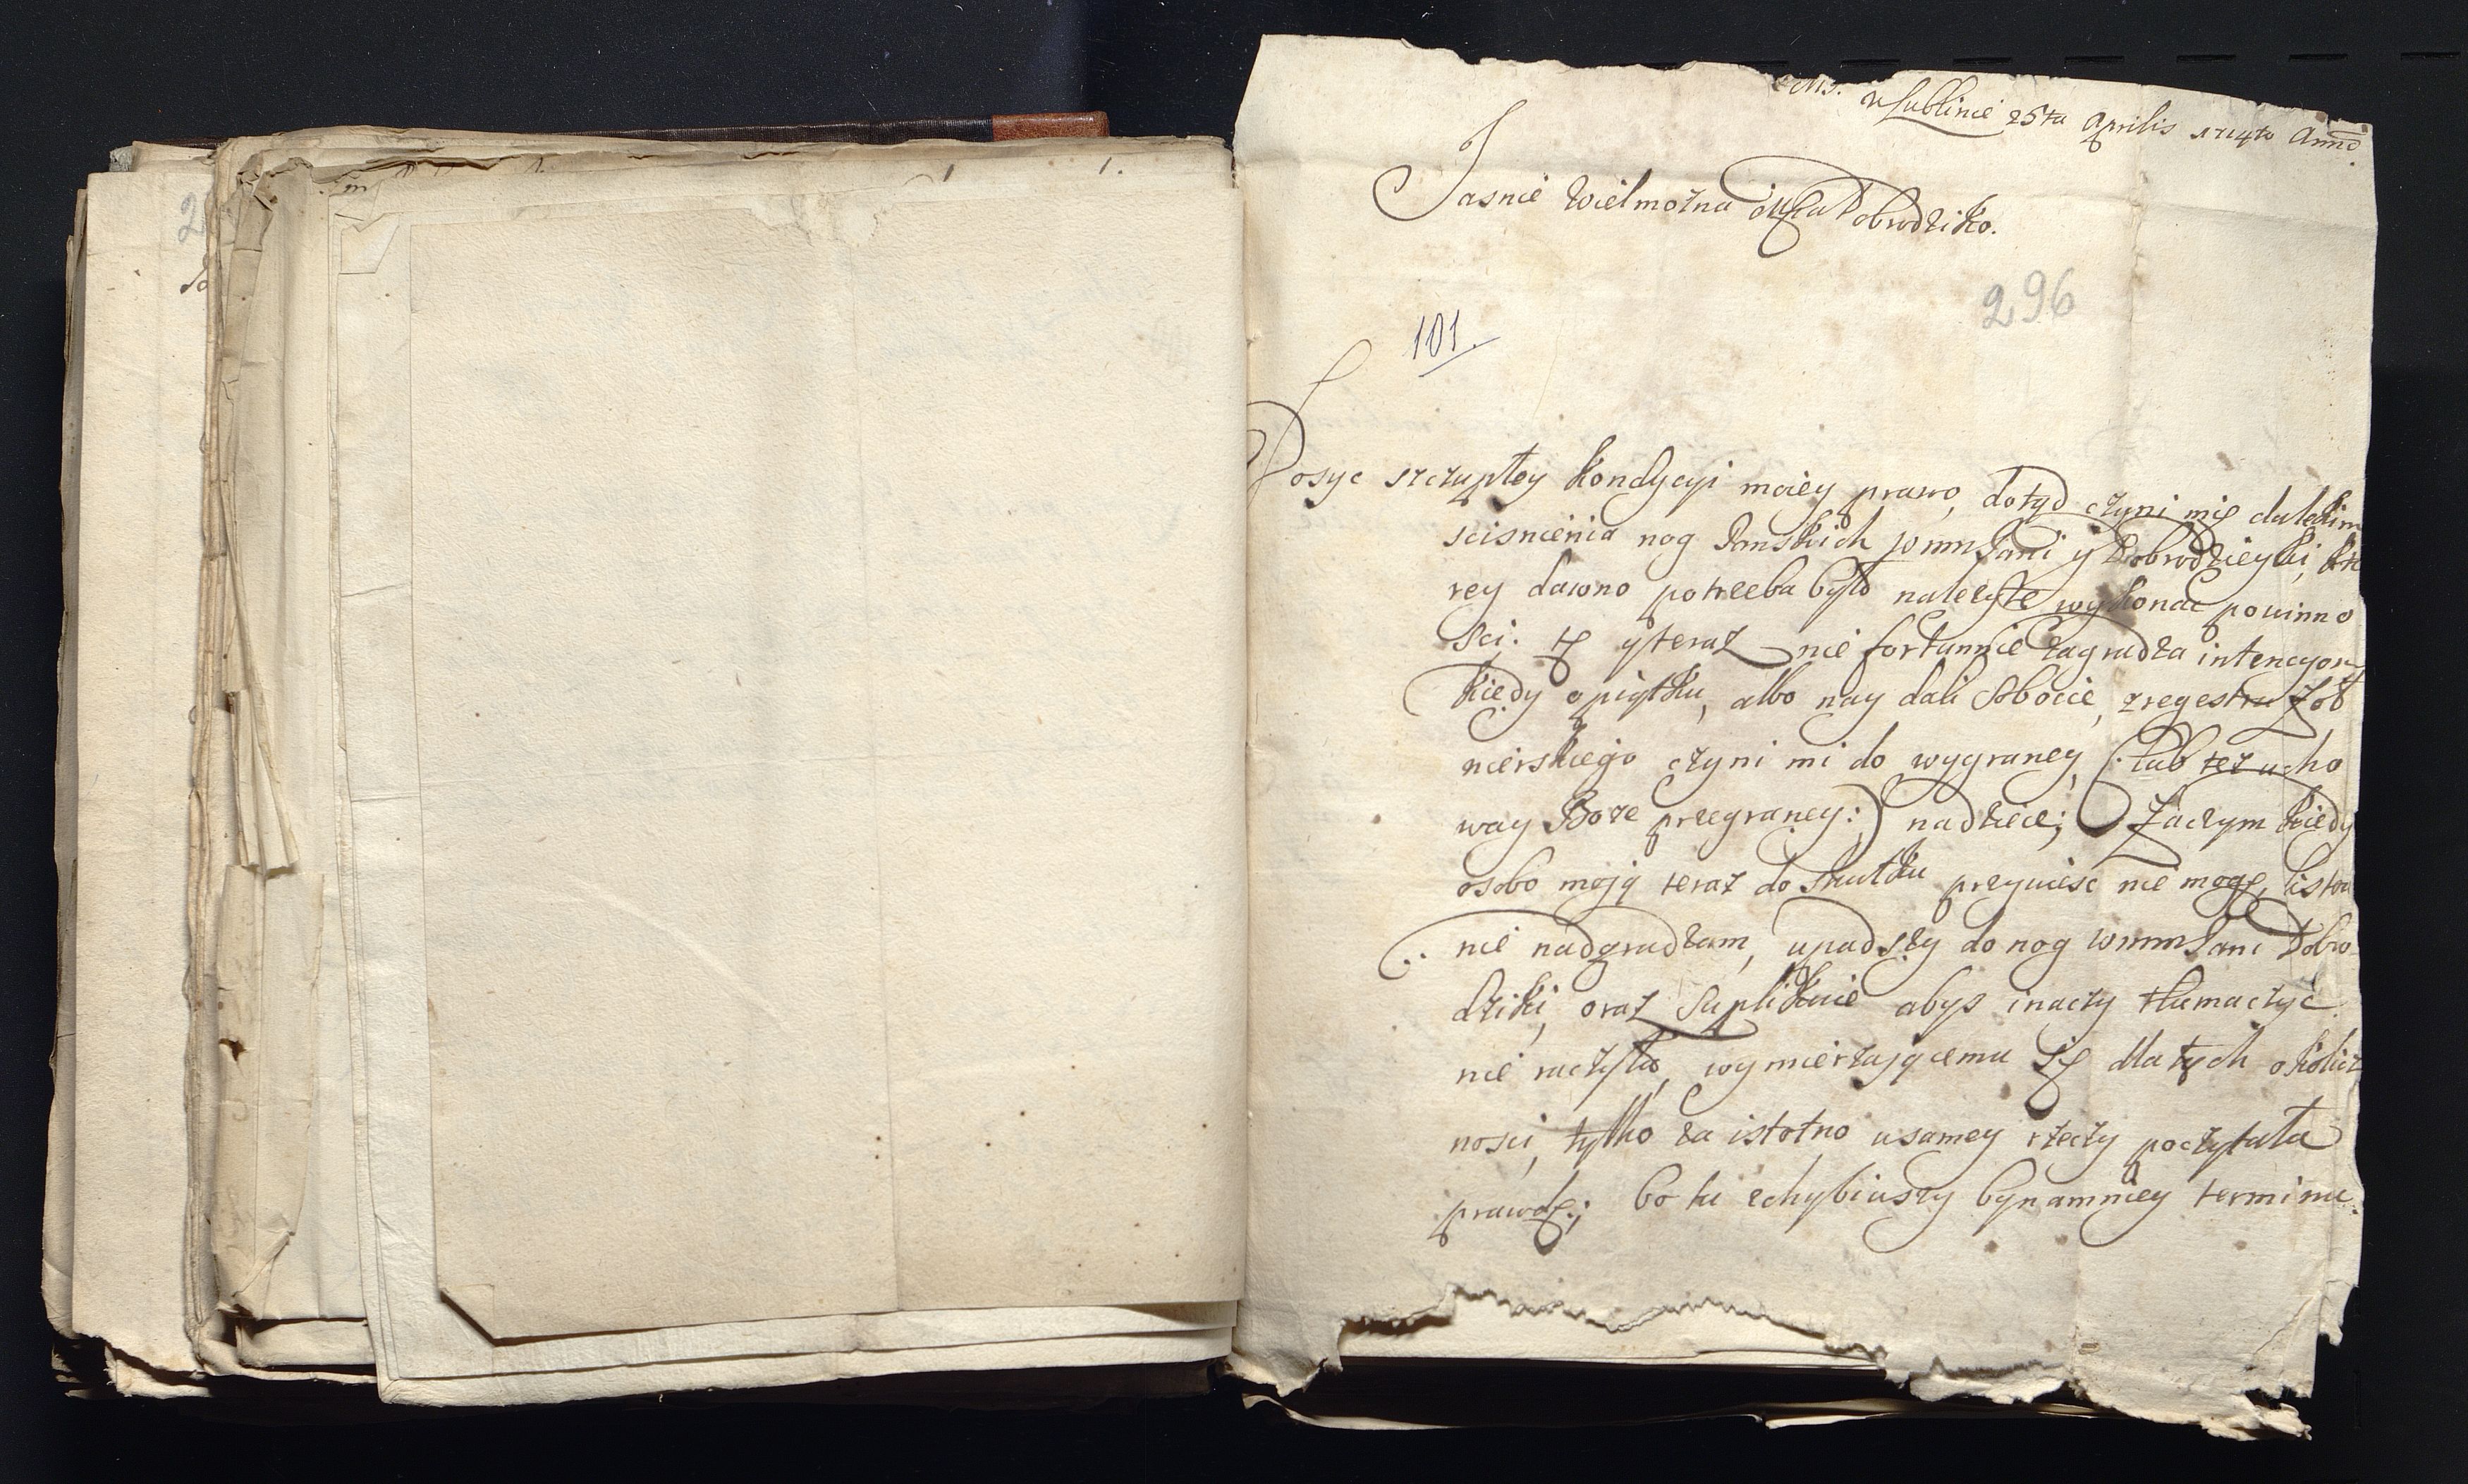 w Lublinie 25ta Aprilis 1714to Anno.
Jasnie Wielmozna Dobrodziko.
296
101.
Dosyc szczupłey Kondycyi moiey prawo, dotyd czyni mię dalekim
scisnienia nog Panskich wmm Pani y Dobrodzieyki, kto
rey dawno potrzeba było nalezyte wykonac powinno
sci: tę y teraz nie fortunnie zagradza intencyą
kiedy o piątku, albo nay dali Sobocie, z regestru Żoł
nierskiego czyni mi do wygraney, (: lub tez ucho
way Boze przegraney:) nadzieie; Zaczym kiedy
osobo moją teraz do skutku przyniesc nie mogę, listow
nie nadgradzam, upadszy do nog wmm Pani Dobro-
dziki, oraz Suplikuie abys inaczy tłumaczyć
nie raczyła, wymierzającemu się dla tych okolicz
nosci, tylko za istotno w samey rzeczy poczytała
prawdę; bo tu zchybiwszy bynamniey terminu.